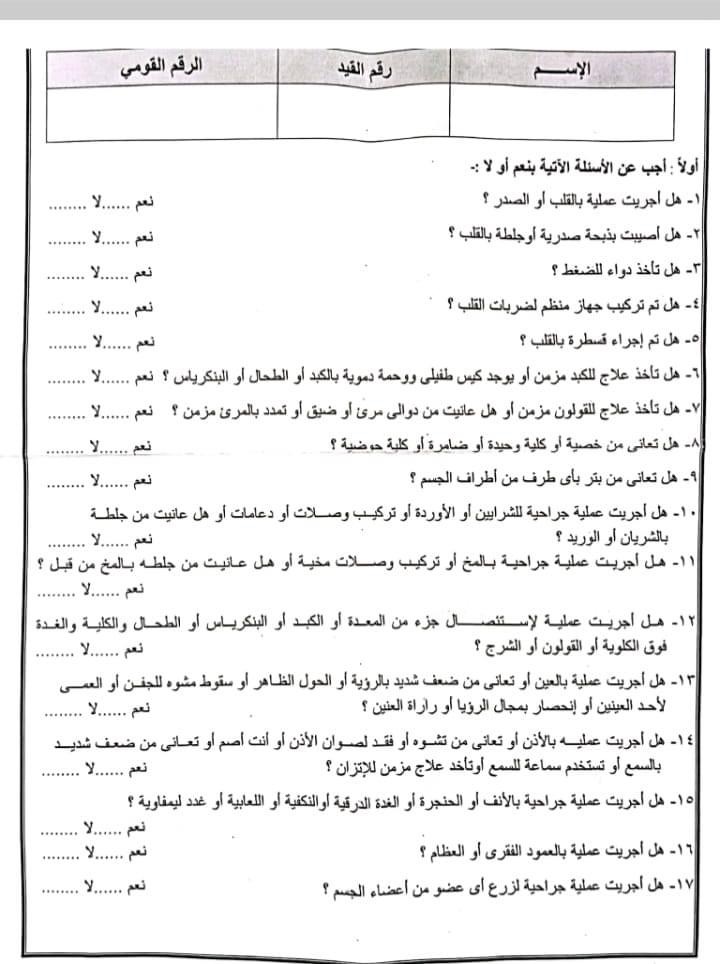 الإســـم رقم القيد الرقم القومي
أولاً : أجب عن الأسئلة الآتية بنعم أو لا :-
١- هل أجريت عملية بالقلب أو الصدر ؟ نعم ......لا ........
٢- هل أصيبت بذبحة صدرية أوجلطة بالقلب ؟ نعم ......لا ........
٣- هل تأخذ دواء للضغط ؟ نعم ......لا ........
٤- هل تم تركيب جهاز منظم لضربات القلب ؟ نعم ......لا ........
٥- هل تم إجراء قسطرة بالقلب ؟ نعم ......لا ........
٦- هل تأخذ علاج للكبد مزمن أو يوجد كيس طفيلى ووحمة دموية بالكبد أو الطحال أو البنكرياس ؟ نعم ......لا ........
٧- هل تأخذ علاج للقولون مزمن أو هل عانيت من دوالى مرئ أو ضيق أو تمدد بالمرئ مزمن ؟ نعم ......لا ........
٨- هل تعانى من خصية أو كلية وحيدة أو ضامرة أو كلية حوضية ؟ نعم ......لا ........
٩- هل تعانى من بتر بأى طرف من أطراف الجسم ؟ نعم ......لا ........
١٠- هل أجريت عملية جراحية للشرايين أو الأوردة أو تركيب وصلات أو دعامات أو هل عانيت من جلطة
بالشريان أو الوريد ؟ نعم ......لا ........
١١- هل أجريت عملية جراحية بالمخ أو تركيب وصلات مخية أو هل عانيت من جلطه بالمخ من قبل ؟
نعم ......لا ........
١٢- هل أجريت عملية لإستئصال جزء من المعدة أو الكبد أو البنكرياس أو الطحال والكلية والغدة
فوق الكلوية أو القولون أو الشرج ؟ نعم ......لا ........
١٣- هل أجريت عملية بالعين أو تعانى من ضعف شديد بالرؤية أو الحول الظاهر أو سقوط مشوه للجفن أو العمى
لأحد العينين أو إنحصار بمجال الرؤيا أو رأرأة العنين ؟ نعم ......لا ........
١٤- هل أجريت عمليه بالأذن أو تعانى من تشوه أو فقد لصوان الأذن أو أنت أصم أو تعانى من ضعف شديد
بالسمع أو تستخدم سماعة للسمع أوتأخذ علاج مزمن للإتزان ؟ نعم ......لا ........
١٥- هل أجريت عملية جراحية بالأنف أو الحنجرة أو الغدة الدرقية أوالنكفية أو اللعابية أو غدد ليمفاوية ؟
نعم ......لا ........
١٦- هل أجريت عملية بالعمود الفقرى أو العظام ؟ نعم ......لا ........
١٧- هل أجريت عملية جراحية لزرع أى عضو من أعضاء الجسم ؟ نعم ......لا ........